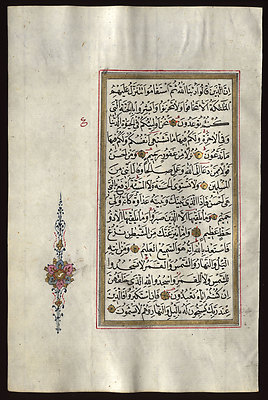 إن الذين قالوا ربنا الله ثم استقاموا تتنزل عليهم
الملئكة ألا تخافوا ولا تحزنوا وأبشروا بالجنة التي
كنتم توعدون نحن أولياؤكم في الحيوة الدنيا
وفي الآخرة ولكم فيها ما تشتهي أنفسكم ولكم فيها
ما تدعون نزلا من غفور رحيم ومن أحسن
قولا ممن دعا إلى الله وعمل صالحا وقال إنني من
المسلمين ولا تستوي الحسنة ولا السيئة ادفع بالتي
هي أحسن فإذا الذي بينك وبينه عداوة كأنه ولي
حميم وما يلقيها إلا الذين صبروا وما يلقيها إلا ذو
حظ عظيم وإما ينزغنك من الشيطان نزغ
فاستعذ بالله إنه هو السميع العليم ومن آياته
الليل والنهار والشمس والقمر لا تسجدوا
للشمس ولا للقمر واسجدوا لله الذي خلقهن
إن كنتم إياه تعبدون فإن استكبروا فالذين
عند ربك يسبحون له بالليل والنهار وهم لا يسئمون